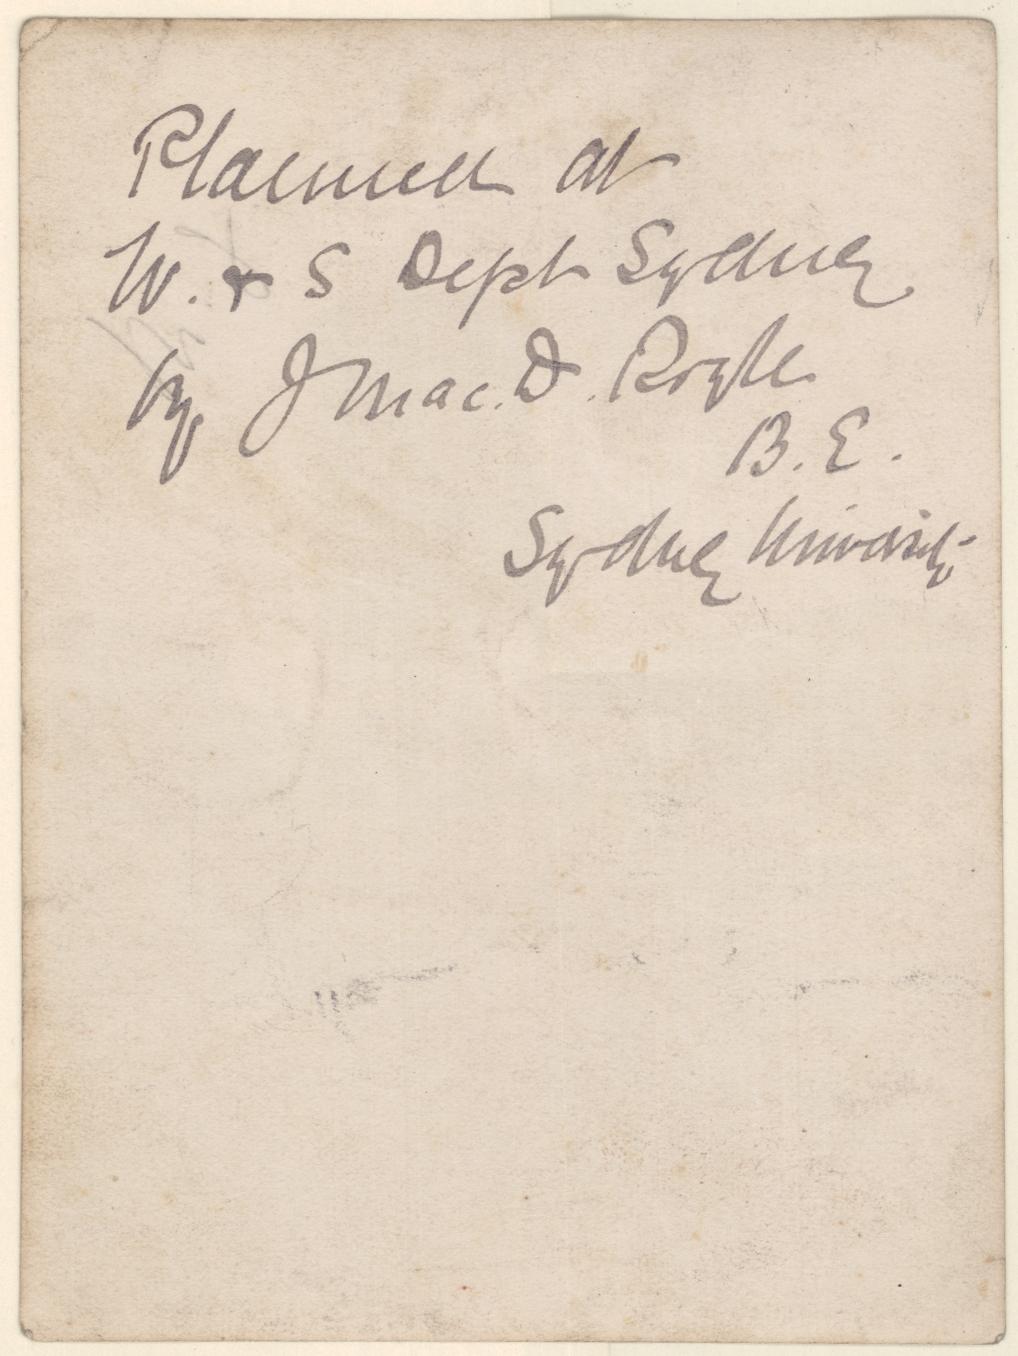 Planned at
W. & S Dept Sydney
by J Mac. D. Royle
B.E.
Sydney University